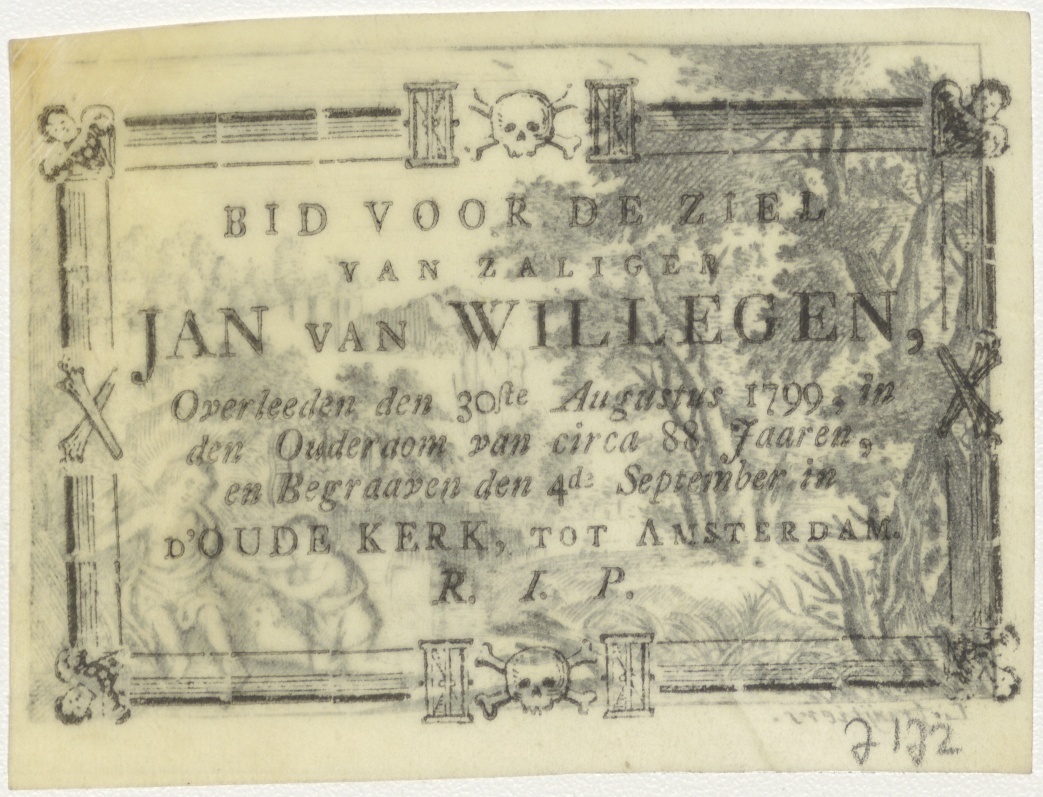 BID VOOR DE ZIEL
VAN ZALIGER
JAN VAN WILLEGEN,
Overleeden den 30ste Augustus 1799, in
den Ouderdom van circa 88 Jaaren,
en Begraaven den 4de September in
D'OUDE KERK, TOT AMSTERDAM.
R. I. P.